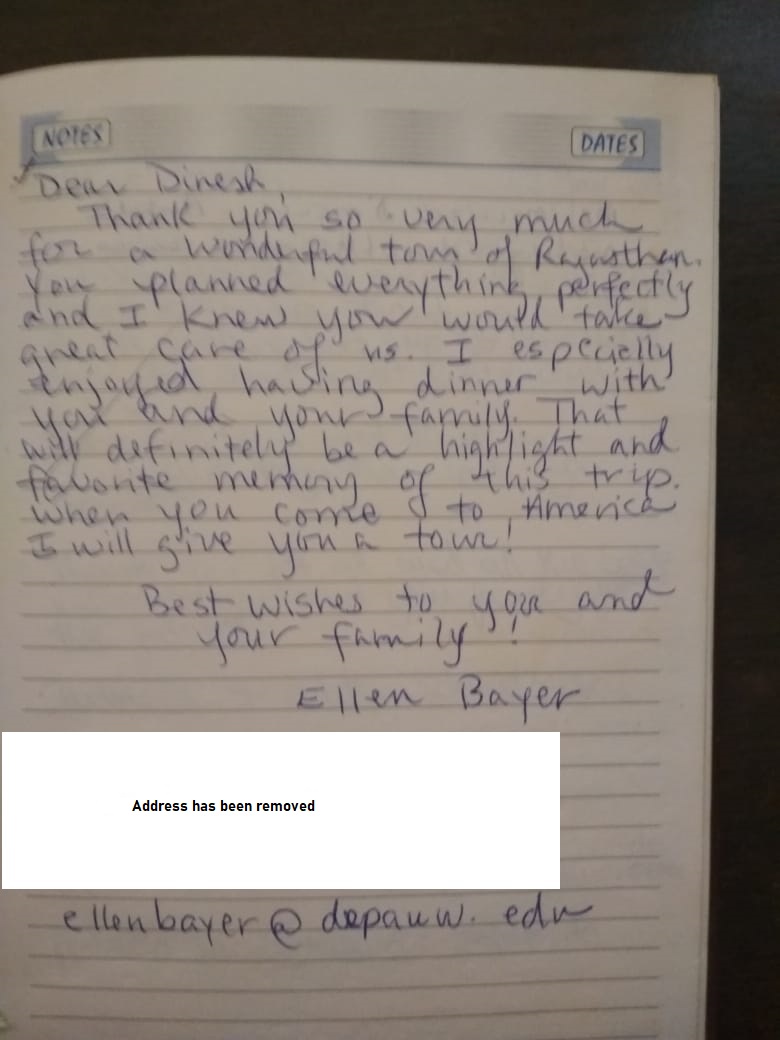 NOTES
DATES
Dear Dinesh,
Thank you so very much
for a wonderful tour of Rajasthan.
You planned everything perfectly
and I knew you would take
great care of us. I especially
enjoyed having dinner with
you and your family. That
will definitely be a highlight and
favorite memory of this trip.
When you come to America
I will give you a tour!
Best wishes to you and
your family!
Ellen Bayer
Address has been removed
ellenbayer@depauw.edu